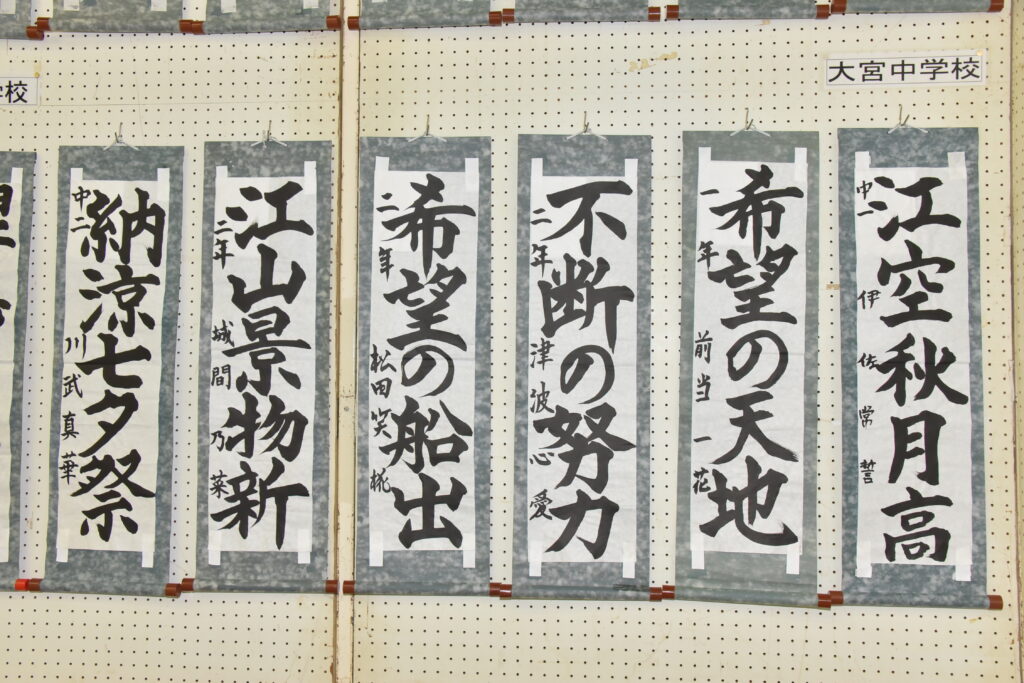 大宮中学校
江空秋月高
中一 伊佐常誓
希望の天地
一年 前当一花
不断の努力
二年 津波心愛
希望の船出
二年 松田笑椛
江山景物新
三年 城間乃菜
納涼七夕祭
中二 川武真華
校